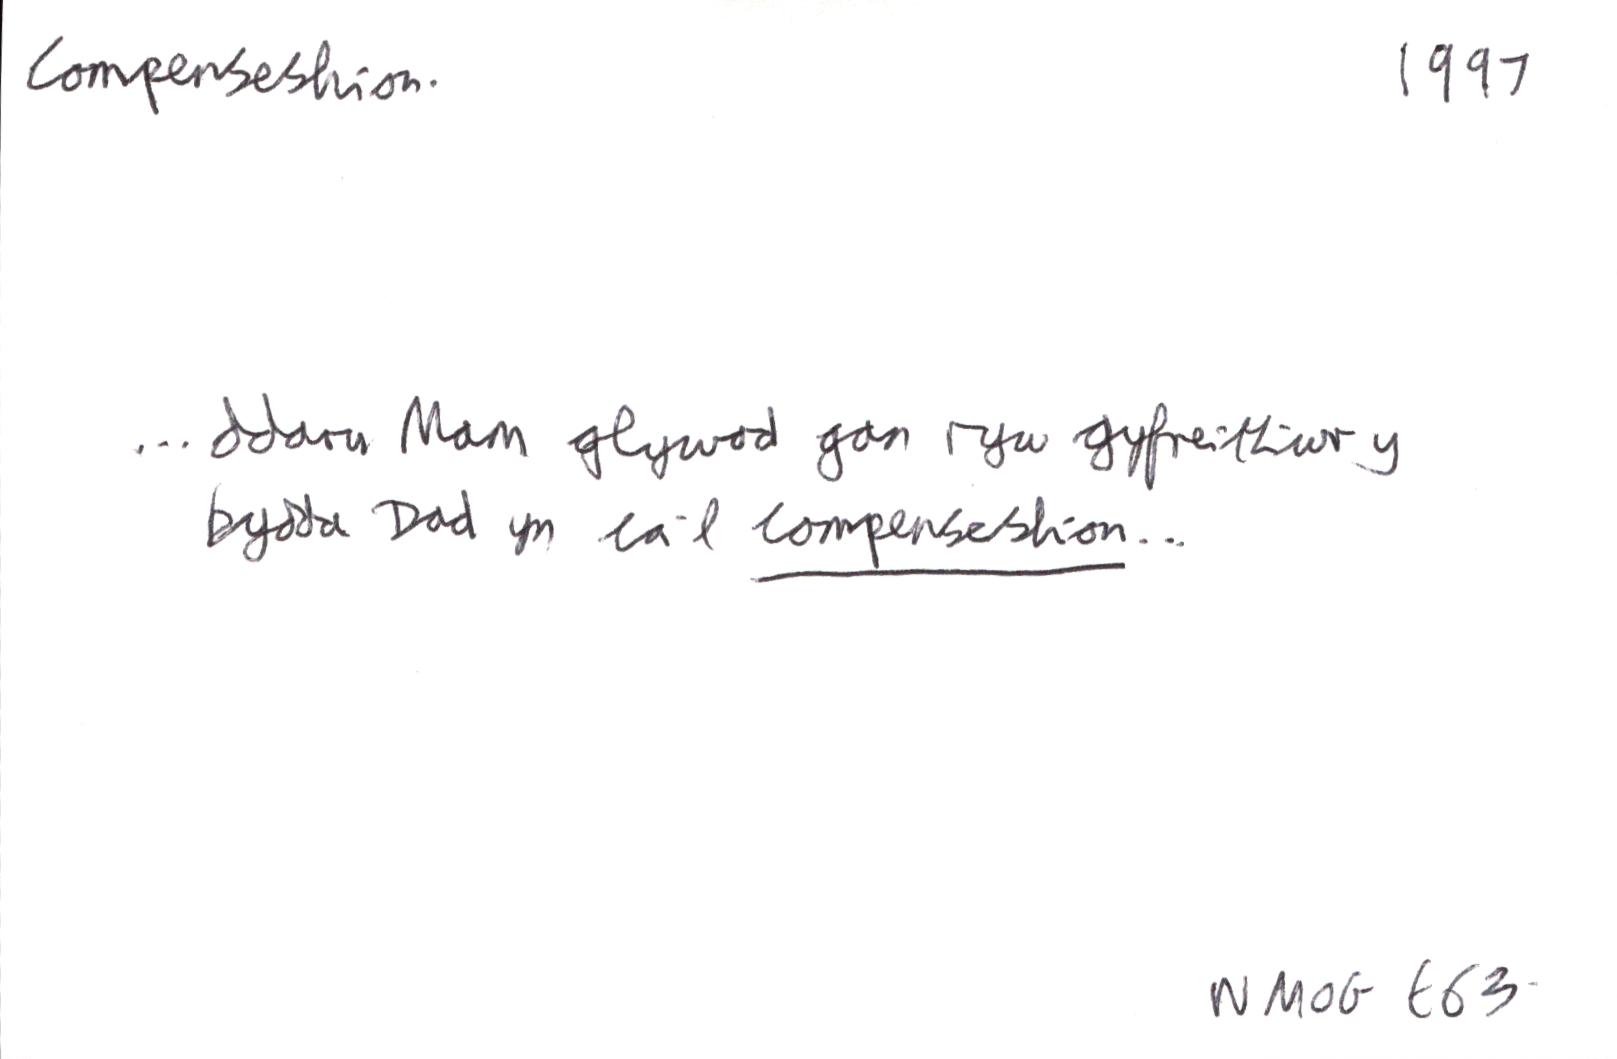 Compenseshion. 1997
... ddaru Mam glywed gan ryw gyfreithiwr y
bydda Dad yn ca'l compenseshion...
W MOG t63.